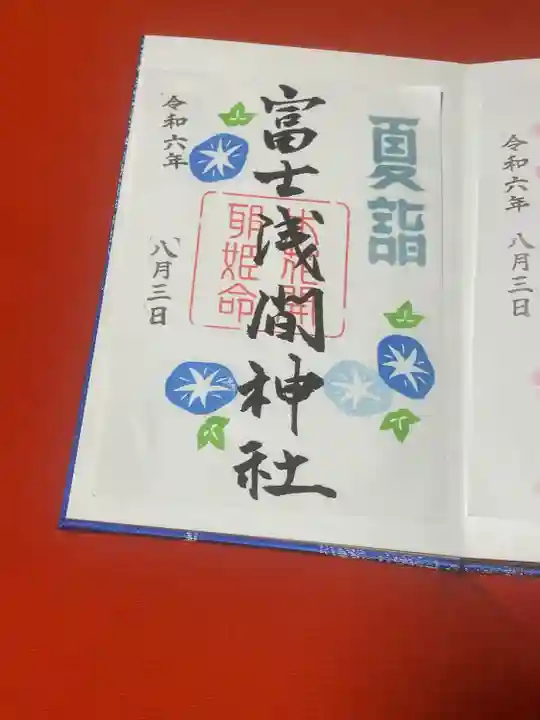 令和六年 八月三日
夏詣
富士浅間神社
木花開
耶姫命
令和六年 八月三日